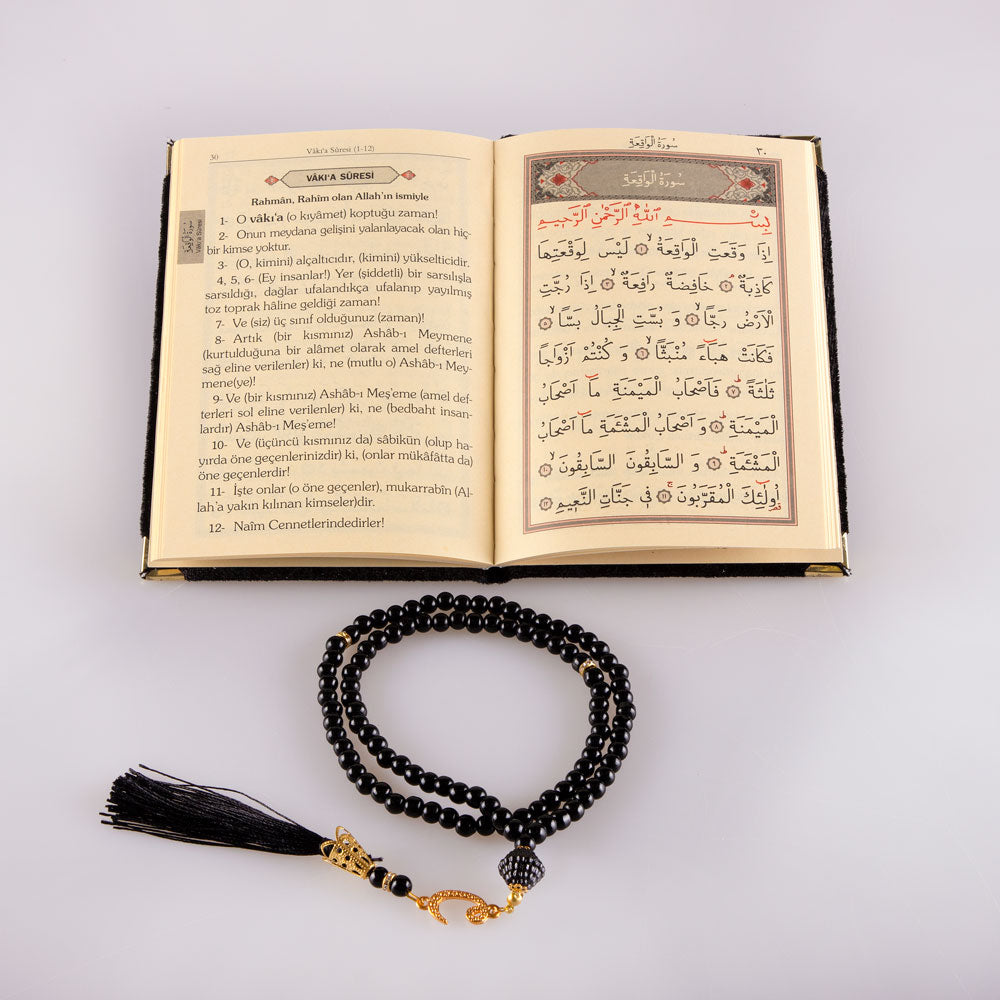 30
Vâkı'a Sûresi (1-12)
VÂKI'A SÛRESİ
Rahmân, Rahîm olan Allah'ın ismiyle
1- O vâkı'a (o kıyâmet) koptuğu zaman!
2- Onun meydana gelişini yalanlayacak olan hiç-
bir kimse yoktur.
3- (O, kimini) alçaltıcıdır, (kimini) yükselticidir.
4, 5, 6- (Ey insanlar!) Yer (şiddetli) bir sarsılışla
sarsıldığı, dağlar ufalandıkça ufalanıp yayılmış
toz toprak hâline geldiği zaman!
7- Ve (siz) üç sınıf olduğunuz (zaman)!
8- Artık (bir kısmınız) Ashâb-ı Meymene
(kurtulduğuna bir alâmet olarak amel defterleri
sağ eline verilenler) ki, ne (mutlu o) Ashâb-ı Mey-
mene(ye)!
9- Ve (bir kısmınız) Ashâb-ı Meş'eme (amel def-
terleri sol eline verilenler) ki, ne (bedbaht insan-
lardır) Ashâb-ı Meş'eme!
10- Ve (üçüncü kısmınız da) sâbikün (olup ha-
yırda öne geçenlerinizdir) ki, (onlar mükâfâtta da)
öne geçenlerdir!
11- İşte onlar (o öne geçenler), mukarrabîn (Al-
lah'a yakın kılınan kimseler)dir.
12- Naîm Cennetlerindedirler!
سورة الواقعة
Vâkı'a Sûresi
سُورَةُ الْوَاقِعَةِ
٣٠
سُورَةُ الْوَاقِعَةِ
بِسْمِ اللّٰهِ الرَّحْمٰنِ الرَّحِيمِ
اِذَا وَقَعَتِ الْوَاقِعَةُ ۙ ﴿١﴾ لَيْسَ لِوَقْعَتِهَا
كَاذِبَةٌ ۘ ﴿٢﴾ خَافِضَةٌ رَافِعَةٌ ۙ ﴿٣﴾ اِذَا رُجَّتِ
الْاَرْضُ رَجًّا ۙ ﴿٤﴾ وَ بُسَّتِ الْجِبَالُ بَسًّا ۙ ﴿٥﴾
فَكَانَتْ هَبَاۤءً مُنْبَثًّا ۙ ﴿٦﴾ وَ كُنْتُمْ اَزْوَاجًا
ثَلٰثَةً ۜ ﴿٧﴾ فَاَصْحَابُ الْمَيْمَنَةِ مَاۤ اَصْحَابُ
الْمَيْمَنَةِ ۜ ﴿٨﴾ وَ اَصْحَابُ الْمَشْئَمَةِ مَاۤ اَصْحَابُ
الْمَشْئَمَةِ ۜ ﴿٩﴾ وَ السَّابِقُونَ السَّابِقُونَ ۙ ﴿١٠﴾
اُولٰۤئِكَ الْمُقَرَّبُونَ ۚ ﴿١١﴾ فِي جَنَّاتِ النَّعِيمِ ﴿١٢﴾